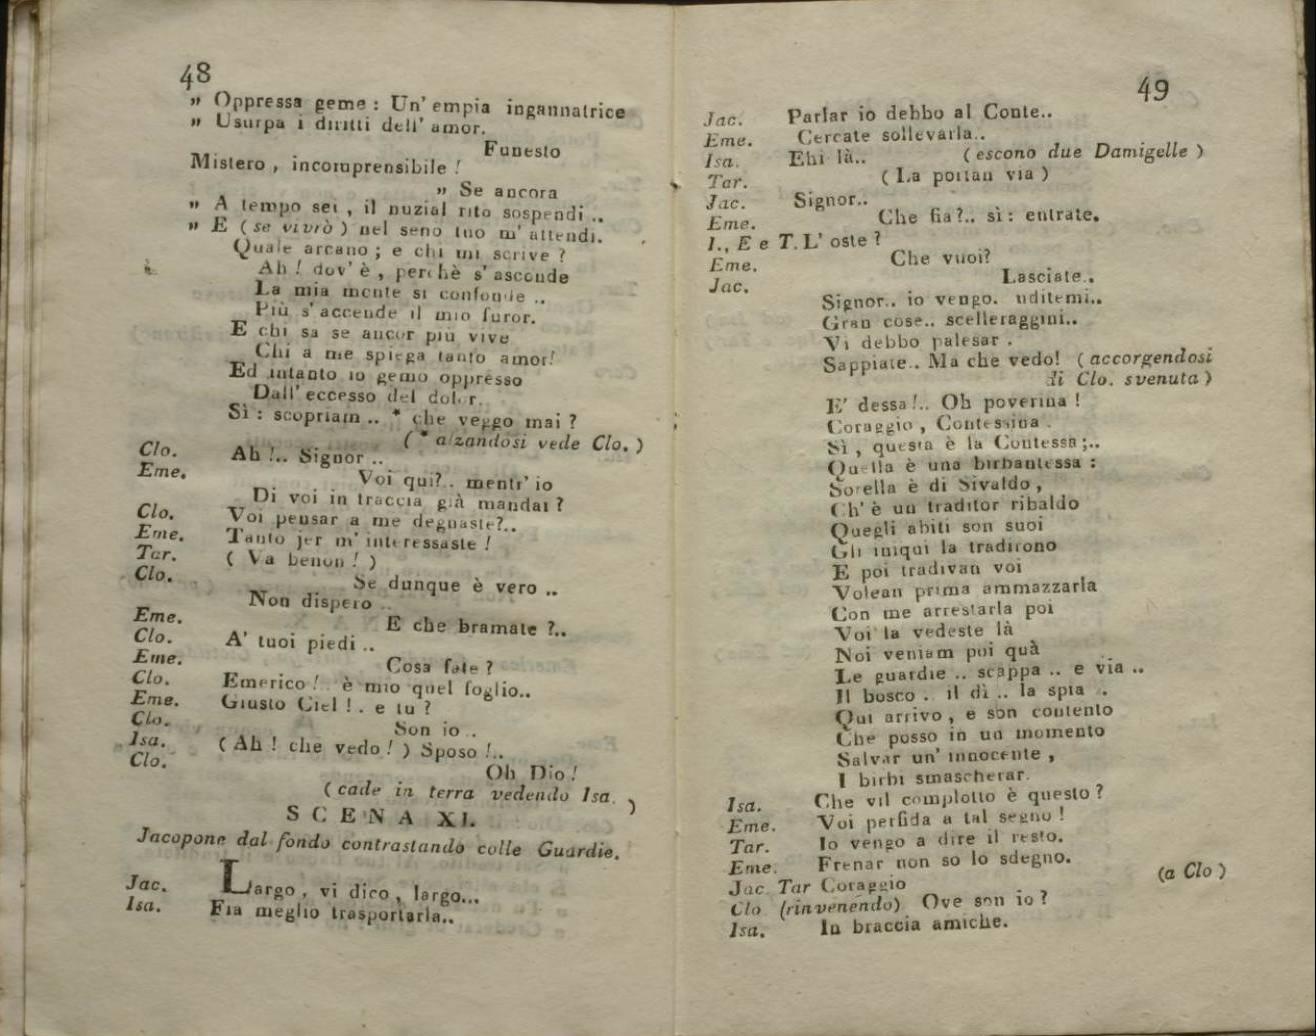 48
„ Oppressa geme : Un' empia ingannatrice
„ Usurpa i diritti dell' amor.
Funesto
Mistero , incomprensibile !
„ Se ancora
„ A tempo sei , il nuzial rito sospendi ..
„ E ( se vivrò ) nel seno tuo m' attendi.
Quale arcano ; e chi mi scrive ?
Ah ! dov' è , perchè s' asconde
La mia mente si confonde ..
Più s' accende il mio furor.
E chi sa se ancor più vive
Chi a me spiega tanto amor!
Ed intanto io gemo oppresso
Dall' eccesso del dolor.
Sì : scopriam .. * che veggo mai ?
( * alzandosi vede Clo. )
Clo. Ah !.. Signor ..
Eme. Voi qui?.. mentr' io
Di voi in traccia già mandai ?
Clo. Voi pensar a me degnaste?..
Eme. Tanto jer m' interessaste !
Tar. ( Va benon ! )
Clo. Se dunque è vero ..
Non dispero ..
Eme. E che bramate ?..
Clo. A' tuoi piedi ..
Eme. Cosa fate ?
Clo. Emerico ! . è mio quel foglio..
Eme. Giusto Ciel ! . e tu ?
Clo. Son io ..
Isa. ( Ah ! che vedo ! ) Sposo !..
Clo. Oh Dio !
( cade in terra vedendo Isa. )
SCENA XI.
Jacopone dal fondo contrastando colle Guardie.
Jac. Largo , vi dico , largo...
Isa. Fia meglio trasportarla..
49
Jac. Parlar io debbo al Conte..
Eme. Cercate sollevarla..
Isa. Ehi là.. ( escono due Damigelle )
Tar. ( La portan via )
Jac. Signor..
Eme. Che fia?.. sì : entrate.
I., E e T. L' oste ?
Eme. Che vuoi?
Jac. Lasciate..
Signor.. io vengo. uditemi..
Gran cose.. scelleraggini..
Vi debbo palesar .
Sappiate.. Ma che vedo! ( accorgendosi
di Clo. svenuta )
E' dessa !.. Oh poverina !
Coraggio , Contessina .
Sì , questa è la Contessa ;..
Quella è una birbantessa :
Sorella è di Sivaldo ,
Ch' è un traditor ribaldo
Quegli abiti son suoi
Gli iniqui la tradirono
E poi tradivan voi
Volean prima ammazzarla
Con me arrestarla poi
Voi la vedeste là
Noi veniam poi quà
Le guardie .. scappa .. e via ..
Il bosco .. il dì .. la spia ..
Qui arrivo , e son contento
Che posso in un momento
Salvar un' innocente ,
I birbi smascherar.
Isa. Che vil complotto è questo ?
Eme. Voi perfida a tal segno !
Tar. Io vengo a dire il resto.
Eme. Frenar non so lo sdegno.
Jac. Tar Coraggio (a Clo )
Clo. (rinvenendo) Ove son io ?
Isa. In braccia amiche.